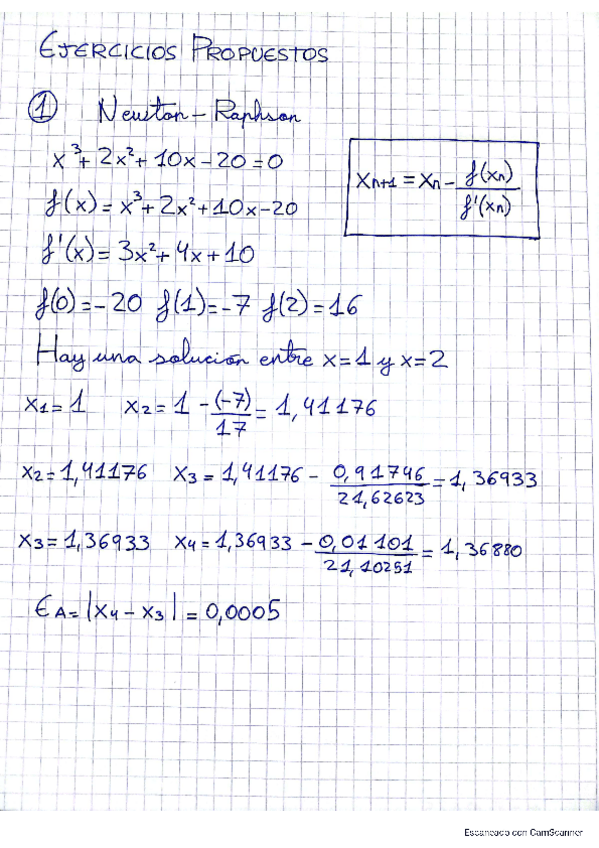 EJERCICIOS PROPUESTOS
① Newton-Raphson
x³+2x²+10x-20=0
f(x)=x³+2x²+10x-20
xn+1 = xn - f(xn)/f'(xn)
f'(x)=3x²+4x+10
f(0)=-20 f(1)=-7 f(2)=16
Hay una solución entre x=1 y x=2
x1=1 x2=1-(-7)/17=1,41176
x2=1,41176 x3=1,41176-0,91746/21,62623=1,36933
x3=1,36933 x4=1,36933-0,01101/21,10251=1,36880
ЄA=|x4-x3|=0,0005
Escaneado con CamScanner